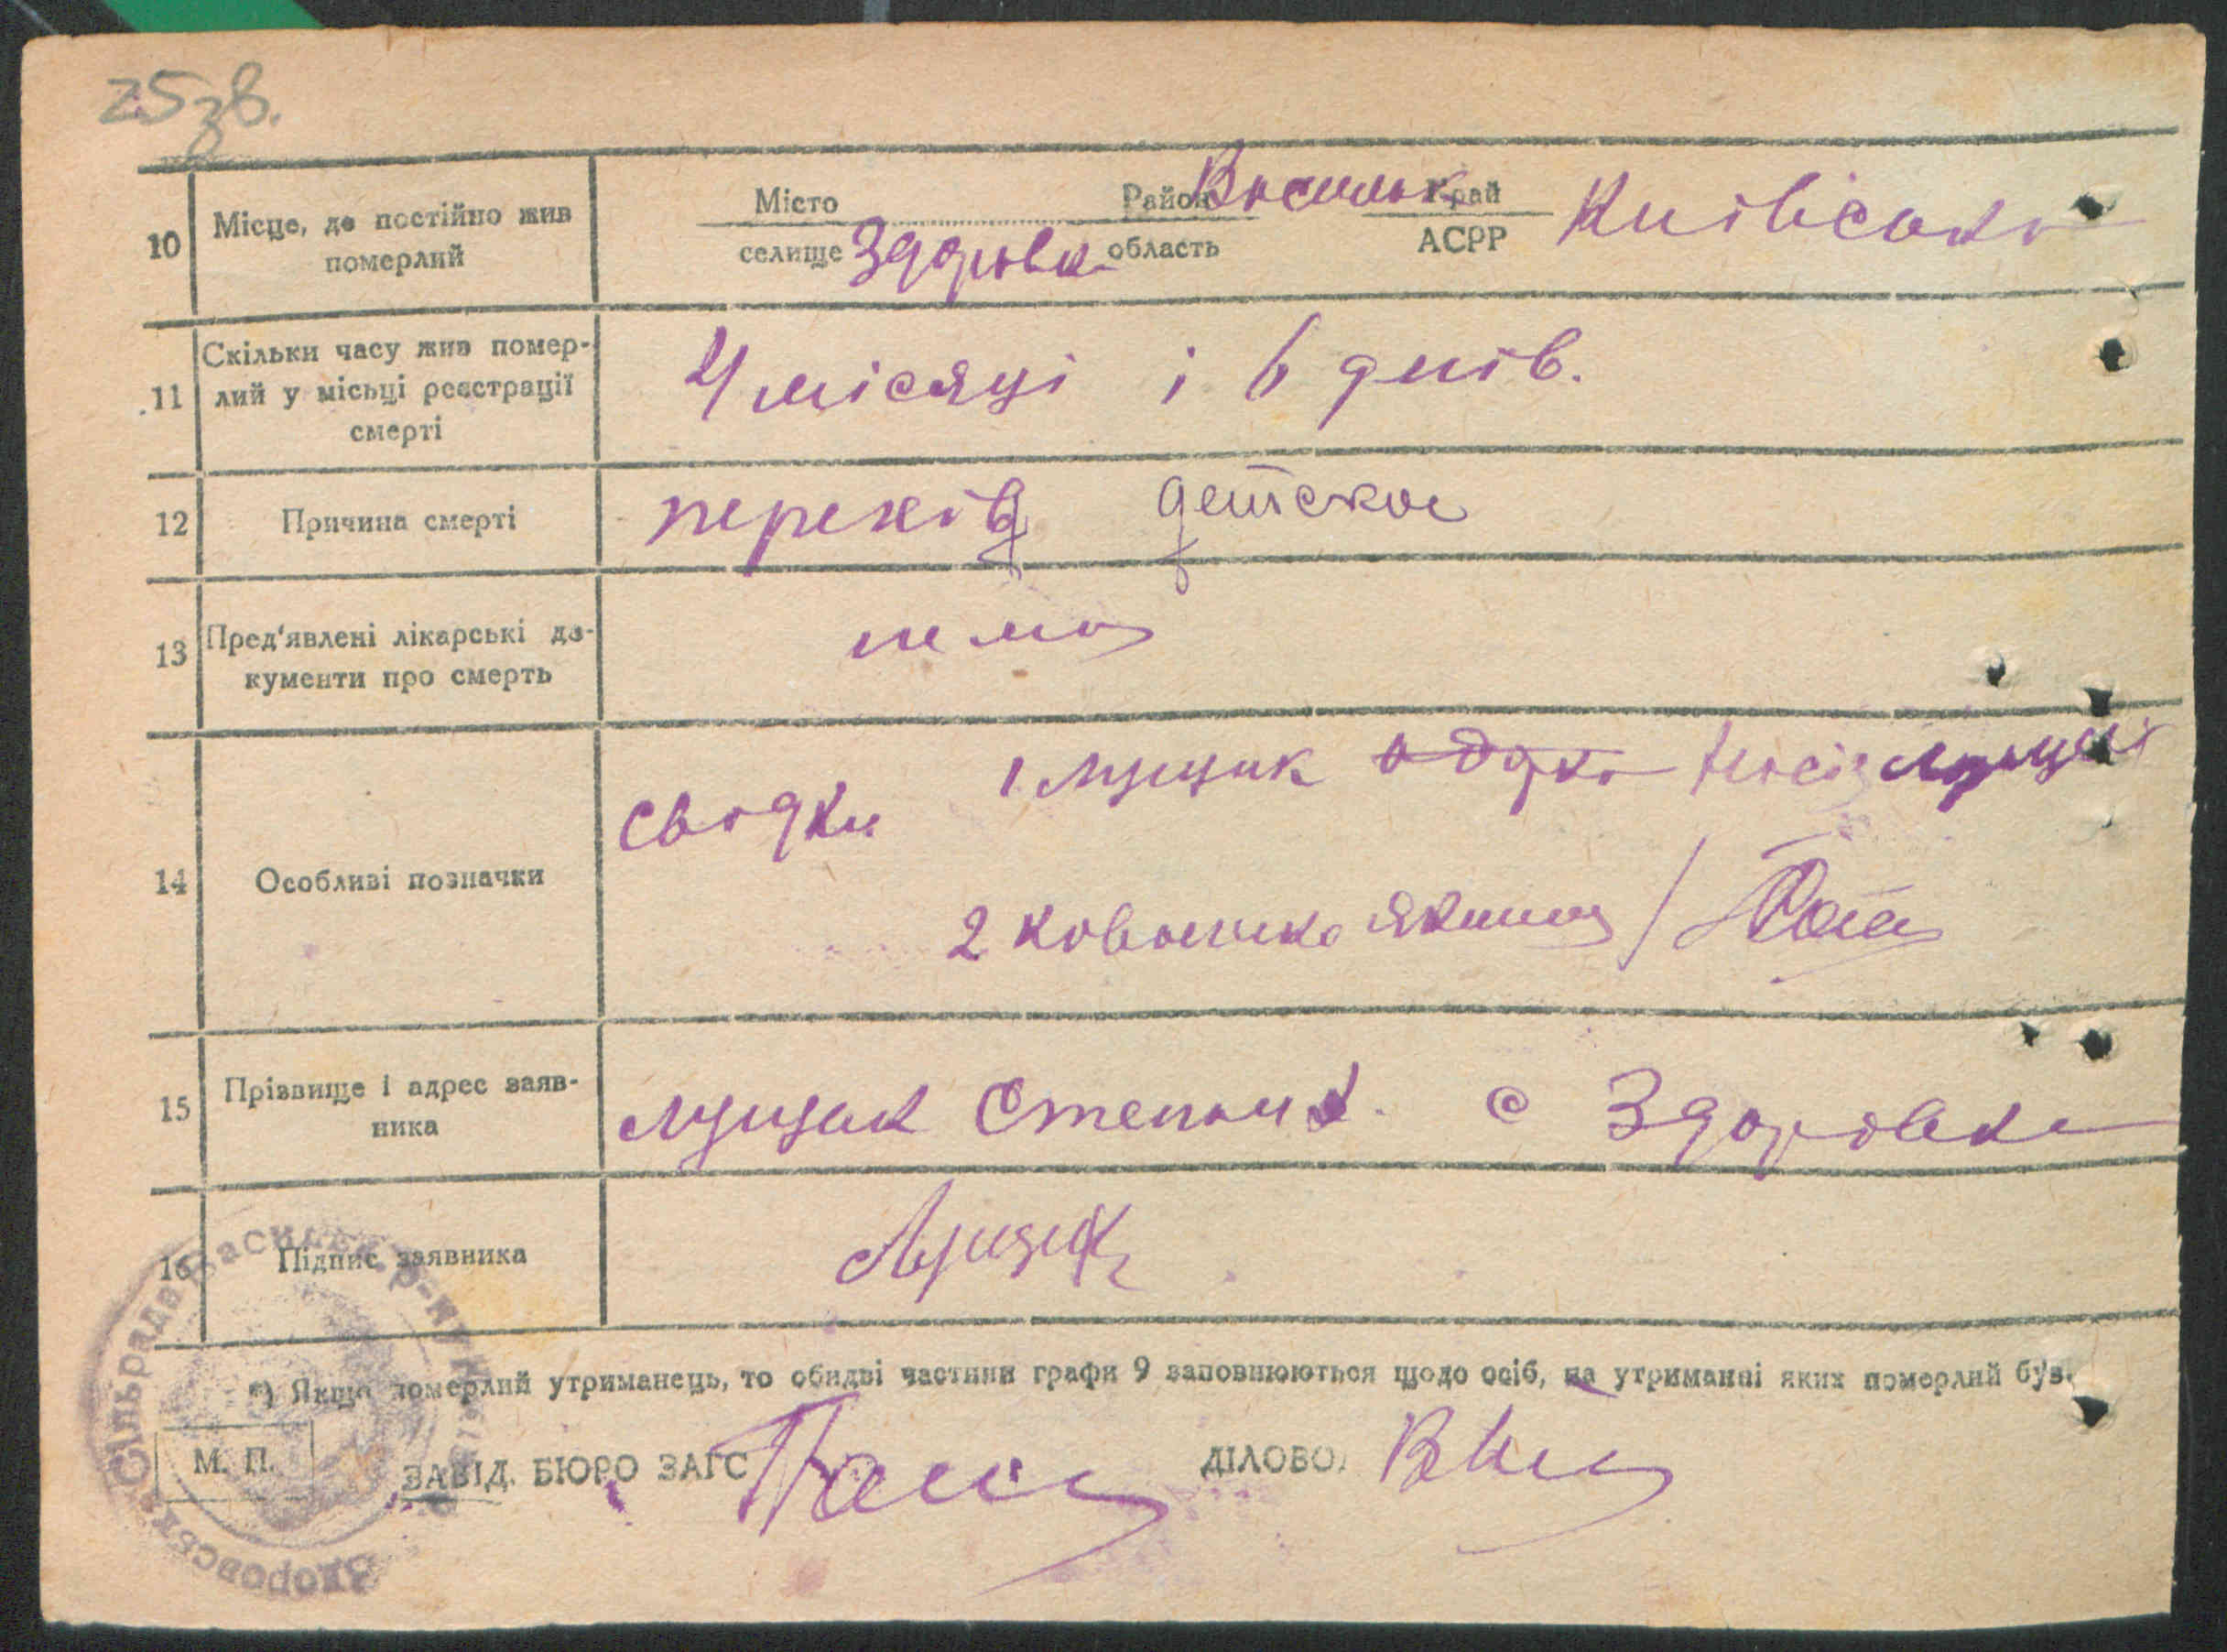 10 Місце, де постійно жив померлий
Місто Район Васильк Край
селище Здорівка область АСРР Київська
11 Скільки часу жив помер-
лий у місьці реєстрації
смерті
4 місяці і 6 днів.
12 Причина смерті
детское
13 Пред'явлені лікарські до-
кументи про смерть
нема
14 Особливі позначки
свідки 1 Луцик
2 Коваленко
15 Прізвище і адрес заяв-
ника
Луцик Степан с Здорівка
16 Підпис заявника
Луцик
*) Якщо померлий утриманець, то обидві частини графи 9 заповнюються щодо осіб, на утриманні яких померлий був.
М. П.
ЗАВІД. БЮРО ЗАГС ДІЛОВОД
Здоровська Сільрада Васильк. р-ну